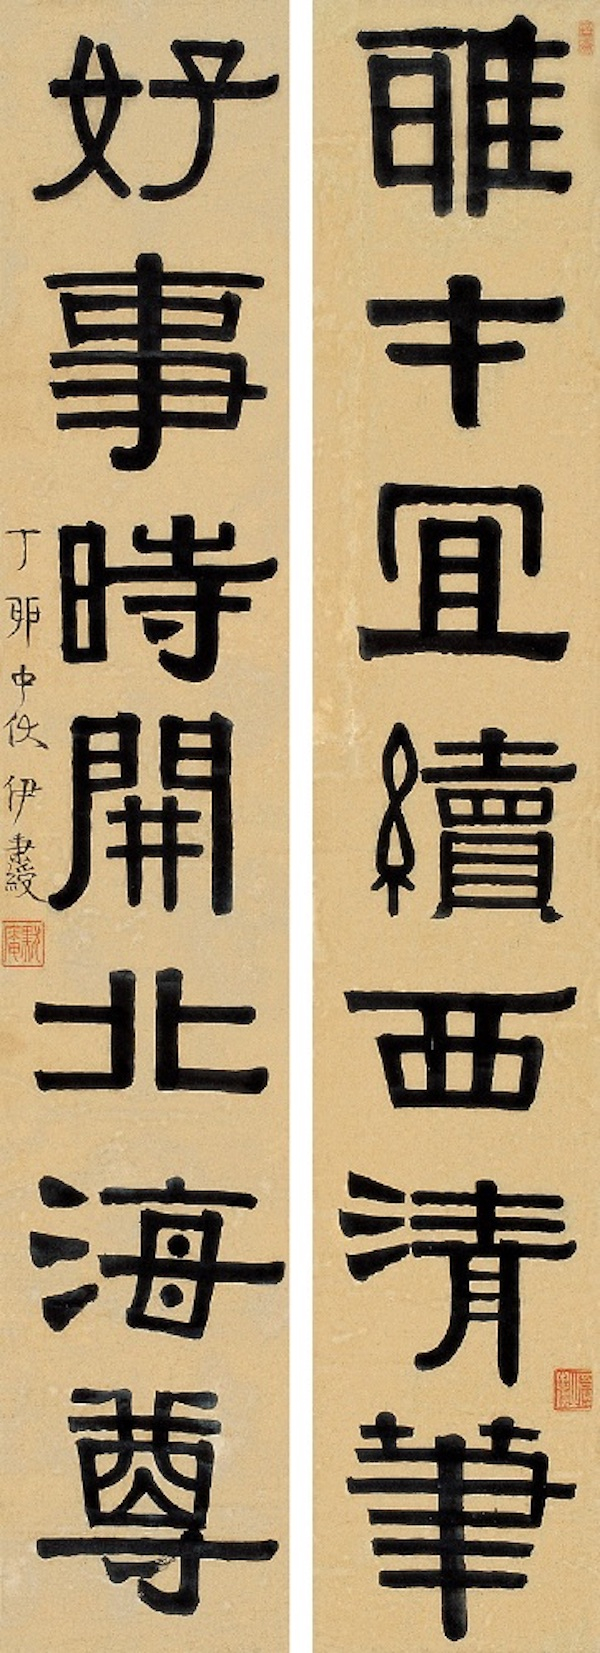 雅才冝續西清筆
好事時開北海尊
丁卯中伏 伊秉綬